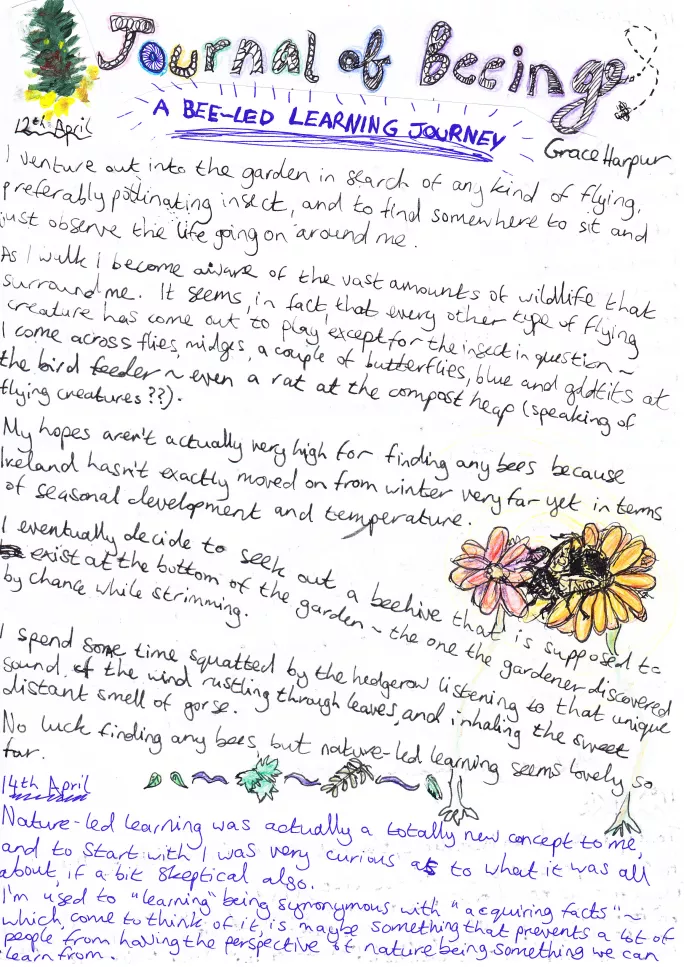 Journal of Beeing
A BEE-LED LEARNING JOURNEY
12th April
Grace Harpur
I venture out into the garden in search of any kind of flying,
preferably pollinating insect, and to find somewhere to sit and
just observe the life going on around me.
As I walk I become aware of the vast amounts of wildlife that
surround me. It seems, in fact, that every other type of flying
creature has come out to play except for the insect in question ~
I come across flies, midges, a couple of butterflies, blue and goldtits at
the bird feeder ~ even a rat at the compost heap (speaking of
flying creatures??).
My hopes aren't actually very high for finding any bees because
Ireland hasn't exactly moved on from winter very far yet in terms
of seasonal development and temperature.
I eventually decide to seek out a beehive that is supposed to
exist at the bottom of the garden ~ the one the gardener discovered
by chance while strimming.
I spend some time squatted by the hedgerow listening to that unique
sound of the wind rustling through leaves, and inhaling the sweet
distant smell of gorse.
No luck finding any bees, but nature-led learning seems lovely so
far.
14th April
Nature-led learning was actually a totally new concept to me,
and to start with I was very curious as to what it was all
about, if a bit skeptical also.
I'm used to "learning" being synonymous with "acquiring facts" ~
which, come to think of it, is maybe something that prevents a lot of
people from having the perspective of nature being something we can
learn from.